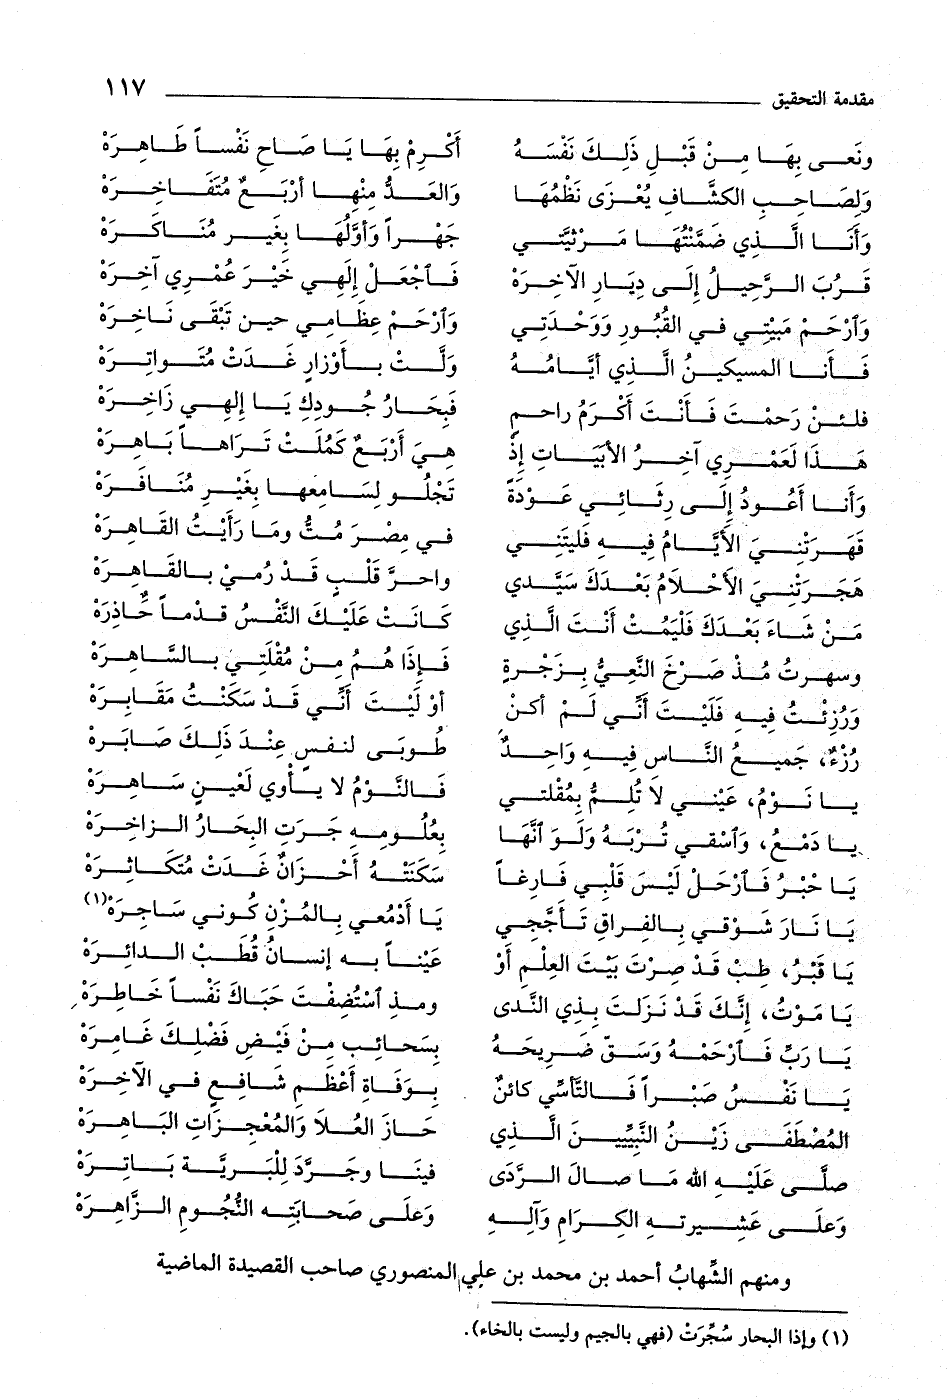 مقدمة التحقيق ١١٧
ونَعى بِهَا مِنْ قَبْلِ ذَلِكَ نَفْسَهُ أَكْرِمْ بِهَا يَا صَاحِ نَفْساً طَاهِرَهْ
وَلِصَاحِبِ الكشَّافِ يُعْزَى نَظْمُهَا وَالعَدُّ مِنْهَا أرْبَعٌ مُتَفَاخِرَهْ
وَأَنَا الَّذِي ضَمَّنْتُهَا مَرْثيَّتي جَهْراً وَأوَّلُهَا بِغَيرِ مُنَاكَرَهْ
قَرُبَ الرَّحِيلُ إِلَى دِيَارِ الآخِرَهْ فَاجْعَلْ إِلَهِي خَيْرَ عُمْرِي آخِرَهْ
وَارْحَمْ مَبيْتِي في القُبُورِ وَوَحْدَتِي وَارْحَمْ عِظَامِي حين تَبْقَى نَاخِرَهْ
فَأنا المسِيكينُ الَّذِي أيَّامُهُ وَلَّتْ بأوْزارٍ غَدَتْ مُتَواتِرَهْ
فلئنْ رَحمْتَ فَأنْتَ أكْرَمُ راحمٍ فَبِحَارُ جُودِكِ يَا إلهِي زَاخِرَهْ
هَذَا لَعَمْرِي آخِرُ الأبْيَاتِ إذْ هِيَ أَرْبَعٌ كَمُلَتْ تَرَاهاً بَاهِرَهْ
وَأنا أعُودُ إلَى رِثَائي عَوْدَةً تَجْلُو لِسَامِعِها بِغَيْرِ مُنَافَرَهْ
قَهَرَتْنِيَ الأيَّامُ فِيهِ فَليتَنِي في مِصْرَ مُتُّ ومَا رَأيْتُ القَاهِرَهْ
هَجَرَتْنِيَ الأحْلامُ بَعْدَكَ سَيِّدي واحرَّ قَلْبٍ قَدْ رُمِيْ بالقَاهِرَهْ
مَنْ شَاءَ بَعْدَكَ فَلْيَمُتْ أنْتَ الَّذِي كَانَتْ عَلَيْكَ النَّفْسُ قدْماً حَاذِرَهْ
وسهرتُ مُذْ صَرْخَ النَّعِيُّ بِزَجْرةٍ فَإذَا هُمُ مِنْ مُقْلَتِي بالسَّاهِرَهْ
وَرُزِئْتُ فيهِ فَلَيْتَ أنِّي لَمْ أكنْ أوْ لَيْتَ أنِّي قَدْ سَكَنْتُ مَقَابِرَهْ
رُزْءٌ، جَميعُ النَّاس فِيهِ وَاحِدٌ طُوبَى لنفسٍ عِنْدَ ذَلِكَ صَابَرهْ
يا نَوْمُ، عَيْنِي لا تُلِمُّ بِمُقْلتي فَالنَّوْمُ لا يأوي لَعْينٍ سَاهِرَهْ
يا دَمْعُ، وَاسْقي تُرْبَهُ وَلَوَ أنَّهَا بِعُلُومِهِ جَرَتِ البِحَارُ الزاخِرَهْ
يَا حْبْرُ فَارْحَلْ لَيْسَ قَلْبِي فَارغاً سَكَنَتْهُ أحْزَانٌ غَدَتْ مُتكَاثِرَهْ
يَا نَارَ شَوْقي بِالفِراقِ تَأجَّجِي يَا أدْمُعي بِالمُزْنِ كُوني سَاجِرَهْ(١)
يَا قَبْرُ، طِبْ قَدْ صِرْتَ بَيْتَ العِلْمِ أَوْ عَيْناً به إنسانُ قُطَبْ الدائِرَهْ
يَا مَوْتُ، إنَّكَ قَدْ نَزَلتَ بِذِي النَّدى ومذِ اسْتُضِفْتَ حَبَاكَ نَفْساً خَاطِرَهْ
يَا رَبِّ فَارْحَمْهُ وَسَقِّ ضَرِيحَهُ بِسَحائِبٍ مِنْ فَيْضِ فَضْلِكَ غَامِرَهْ
يَا نَفْسُ صَبْراً فَالتَّأسِّي كائنٌ بِوَفَاةِ أعْظَمِ شَافِعٍ في الآخِرَهْ
المُصْطَفَى زَيْنُ النَّبِيِّينَ الَّذِي حَازَ العُلَا وَالمُعْجِزَاتِ البَاهِرَهْ
صلَّى عَلَيْهِ الله مَا صالَ الرَّدَى فينَا وجَرَّدَ لِلْبَرِيَّةِ بَاتِرَهْ
وَعلَى عَشِيرتهِ الكِرَامِ وَآلِهِ وَعلَى صَحابَتِه النُّجُومِ الزَّاهِرَهْ
ومنهم الشِّهابُ أحمد بن محمد بن علي المنصوري صاحب القصيدة الماضية
(١) وإذا البحار سُجِّرَتْ (فهي بالجيم وليست بالخاء).